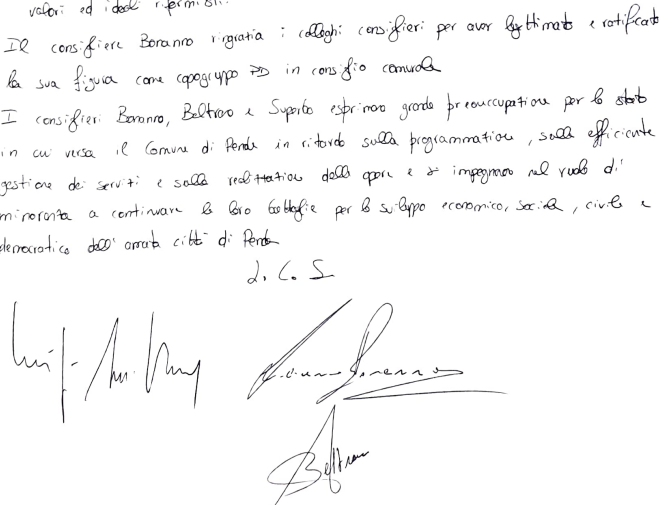 valori ed ideali riformisti.
Il consigliere Bonanno ringrazia i colleghi consiglieri per aver legittimato e ratificato
la sua figura come capogruppo PD in consiglio comunale
I consiglieri Bonanno, Beltrano e Superbo esprimono grande preoccupazione per lo stato
in cui versa il Comune di Penne in ritardo sulla programmazione, sulla efficiente
gestione dei servizi e sulla realizzazione delle opere e si impegnano nel ruolo di
minoranza a continuare le loro battaglie per lo sviluppo economico, sociale, civile e
democratico dell'amata città di Penne
L. C. S
Beltrano